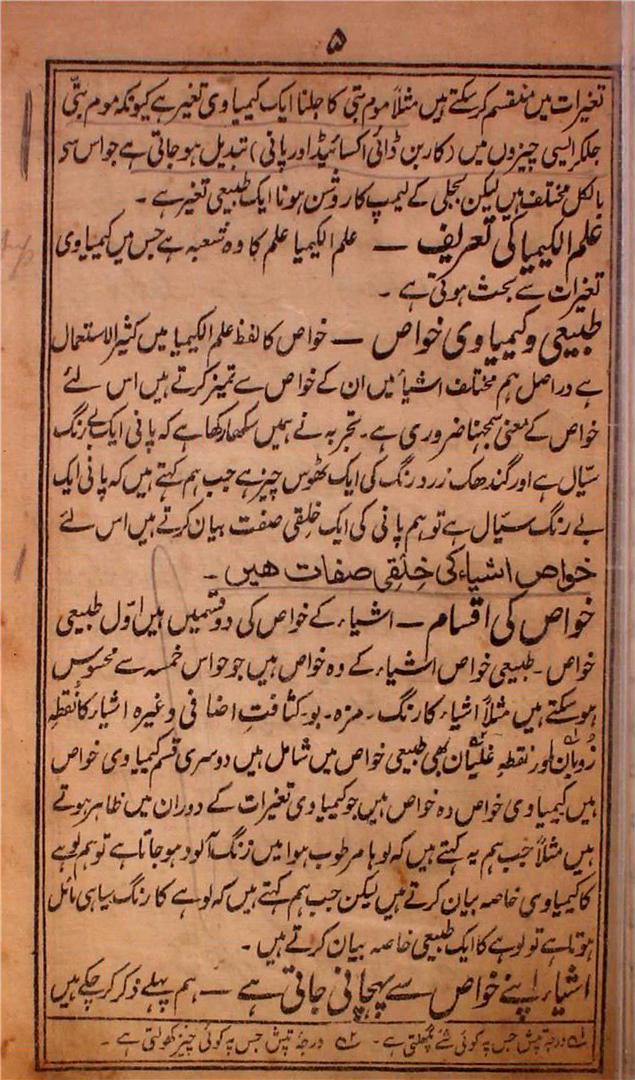 ۵
تغیرات میں منقسم کر سکتے ہیں مثلاً موم بتی کا جلنا ایک کیمیاوی تغیر ہے کیونکہ موم بتی
جلکر ایسی چیزوں میں (کاربن ڈائی اکسائیڈ اور پانی) تبدیل ہو جاتی ہے جو اس سے
بالکل مختلف ہیں لیکن بجلی کے لیمپ کا روشن ہونا ایک طبیعی تغیر ہے ۔
علم الکیمیا کی تعریف — علم الکیمیا علم کا وہ شعبہ ہے جس میں کیمیاوی
تغیرات سے بحث ہوتی ہے ۔
طبیعی و کیمیاوی خواص — خواص کا لفظ علم الکیمیا میں کثیر الاستعمال
ہے دراصل ہم مختلف اشیاء میں ان کے خواص سے تمیز کرتے ہیں اس لئے
خواص کے معنی سمجہنا ضروری ہے ۔ تجربہ نے ہمیں سکھا رکھا ہے کہ پانی ایک بے رنگ
سیّال ہے اور گندھک زرد رنگ کی ایک ٹھوس چیز ہے جب ہم کہتے ہیں کہ پانی ایک
بے رنگ سیّال ہے تو ہم پانی کی ایک خِلقی صفت بیان کرتے ہیں اس لئے
خواص اشیاء کی خِلقِی صفات ھیں ۔
خواص کی اقسام — اشیاء کے خواص کی دو قسمیں ہیں اوّل طبیعی
خواص ۔ طبیعی خواص اشیاء کے وہ خواص ہیں جو حواس خمسہ سے محسوس
ہو سکتے ہیں مثلاً اشیاء کا رنگ ۔ مزہ ۔ بو ۔ کثافتِ اضافی وغیرہ اشیاء کا نقطہِ
ذُوبان۱؎ اور نقطہِ غلیان۲؎ بھی طبیعی خواص میں شامل ہیں دوسری قسم کیمیاوی خواص
ہیں کیمیاوی خواص وہ خواص ہیں جو کیمیاوی تغیرات کے دوران میں ظاہر ہوتے
ہیں مثلاً جب ہم یہ کہتے ہیں کہ لوہا مرطوب ہوا میں زنگ آلود ہو جاتا ہے تو ہم لوہے
کا کیمیاوی خاصہ بیان کرتے ہیں لیکن جب ہم کہتے ہیں کہ لوہے کا رنگ سیاہی مائل
ہوتا ہے تو لوہے کا ایک طبیعی خاصہ بیان کرتے ہیں ۔
اشیاء اپنے خواص سے پہچانی جاتی ہے — ہم پہلے ذکر کر چکے ہیں
۱؎ درجہ تپش جس پہ کوئی شے پگھلتی ہے ۔ ۲؎ درجۂ تپش جس پہ کوئی چیز کھولتی ہے ۔